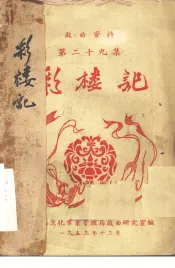 彩楼記
戲曲資料
第二十九集
彩樓記
文化事業管理局戲曲研究室編
一九五三年十二月